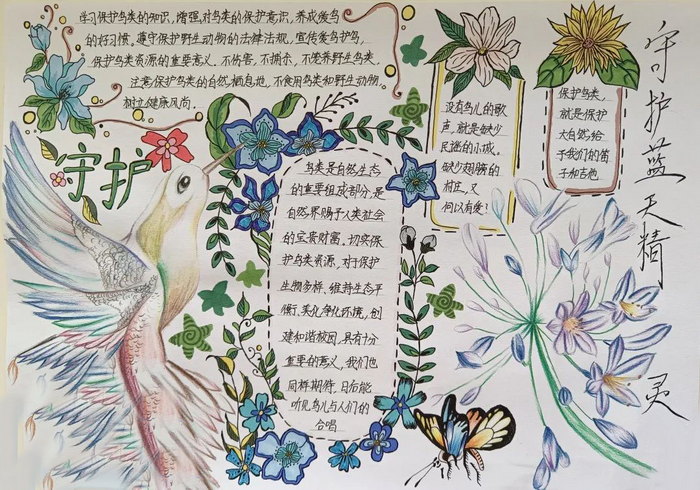 学习保护鸟类的知识，增强对鸟类的保护意识，养成爱鸟
的好习惯。遵守保护野生动物的法律法规，宣传爱鸟护鸟，
保护鸟类资源的重要意义，不伤害，不捕杀，不笼养野生鸟类，
注意保护鸟类的自然栖息地，不食用鸟类和野生动物
树立健康风尚。
守护
鸟类是自然生态
的重要组成部分，是
自然界赐予人类社会
的宝贵财富。切实保
护鸟类资源，对于保护
生物多样、维持生态平
衡、美化净化环境，创
建和谐校园，具有十分
重要的意义。我们也
同样期待，日后能
听见鸟儿与人们的
合唱
没有鸟儿的歌
声，就是缺少
民谣的小城。
缺少翅膀的
村庄，又
何以有爱！
保护鸟类，
就是保护
大自然给
予我们的笛
子和吉他
守护蓝天精灵